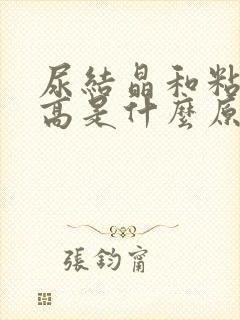 尿結晶和粘
高是什麼原
張鈞甯